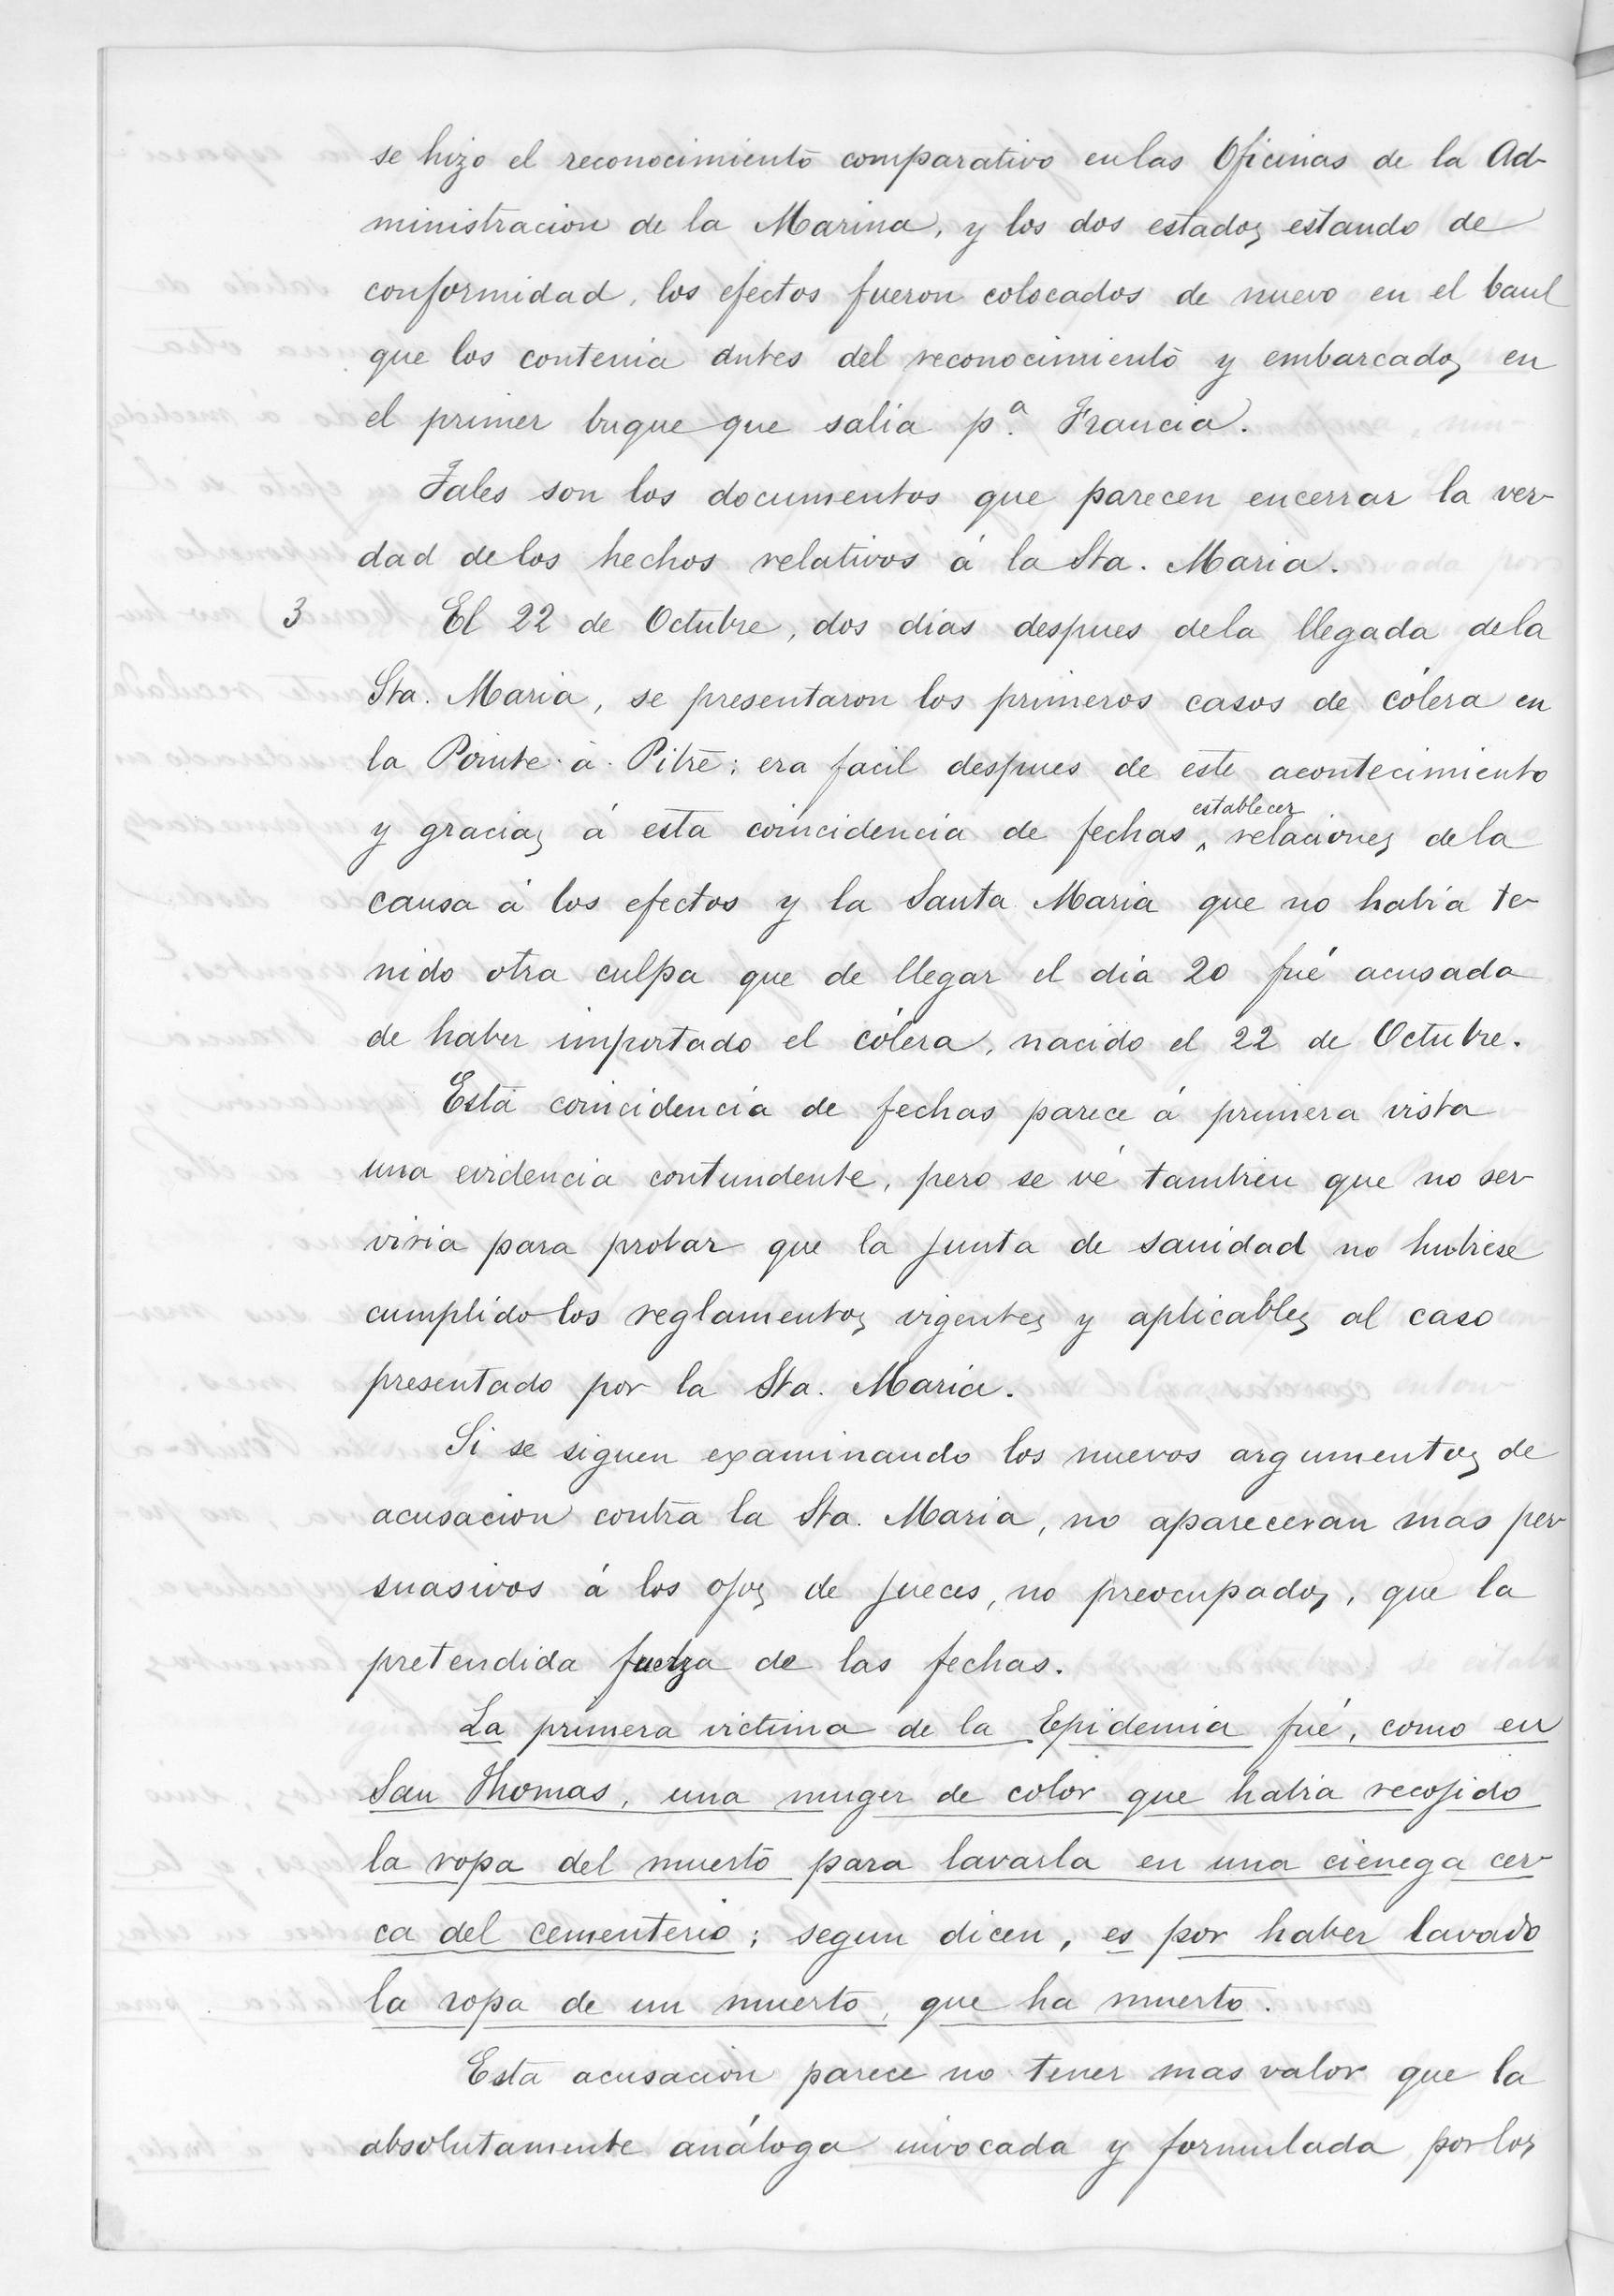 se hizo el reconocimiento comparativo en las Oficinas de la Ad-
ministracion de la Marina, y los dos estados estando de
conformidad, los efectos fueron colocados de nuevo en el baul
que los contenia antes del reconocimiento y embarcados en
el primer buque que salia pª. Francia.
Tales son los documentos que parecen encerrar la ver-
dad de los hechos relativos á la Sta. Maria.
3 El 22 de Octubre, dos dias despues de la llegada de la
Sta. Maria, se presentaron los primeros casos de cólera en
la Pointe à Pitre; era facil despues de este acontecimiento
establecer
y gracias á esta coincidencia de fechas ^ relaciones de la
causa á los efectos y la Santa Maria que no habia te-
nido otra culpa que de llegar el dia 20 fué acusada
de haber importado el cólera, nacido el 22 de Octubre.
Esta coincidencia de fechas parece á primera vista
una evidencia contundente, pero se vé tambien que no ser-
viria para probar que la junta de sanidad no hubiese
cumplido los reglamentos vigentes y aplicables al caso
presentado por la Sta. Maria.
Si se siguen examinando los nuevos argumentos de
acusacion contra la Sta. Maria, no apareceran mas per-
suasivos á los ojos de jueces, no preocupados, que la
pretendida fuerza de las fechas.
La primera victima de la Epidemia fué, como en
San Thomas, una muger de color que habia recojido
la ropa del muerto para lavarla en una cienega cer-
ca del cementerio; segun dicen, es por haber lavado
la ropa de un muerto, que ha muerto.
Esta acusacion parece no tener mas valor que la
absolutamente análoga invocada y formulada por los